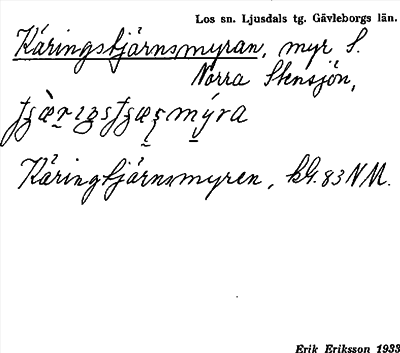 Los sn. Ljusdals tg. Gävleborgs län.
Käringstjärnsmyran, myr S.
Norra Stensjön,
Käringtjärnsmyren, kbl. 83 NM.
Erik Eriksson 1933